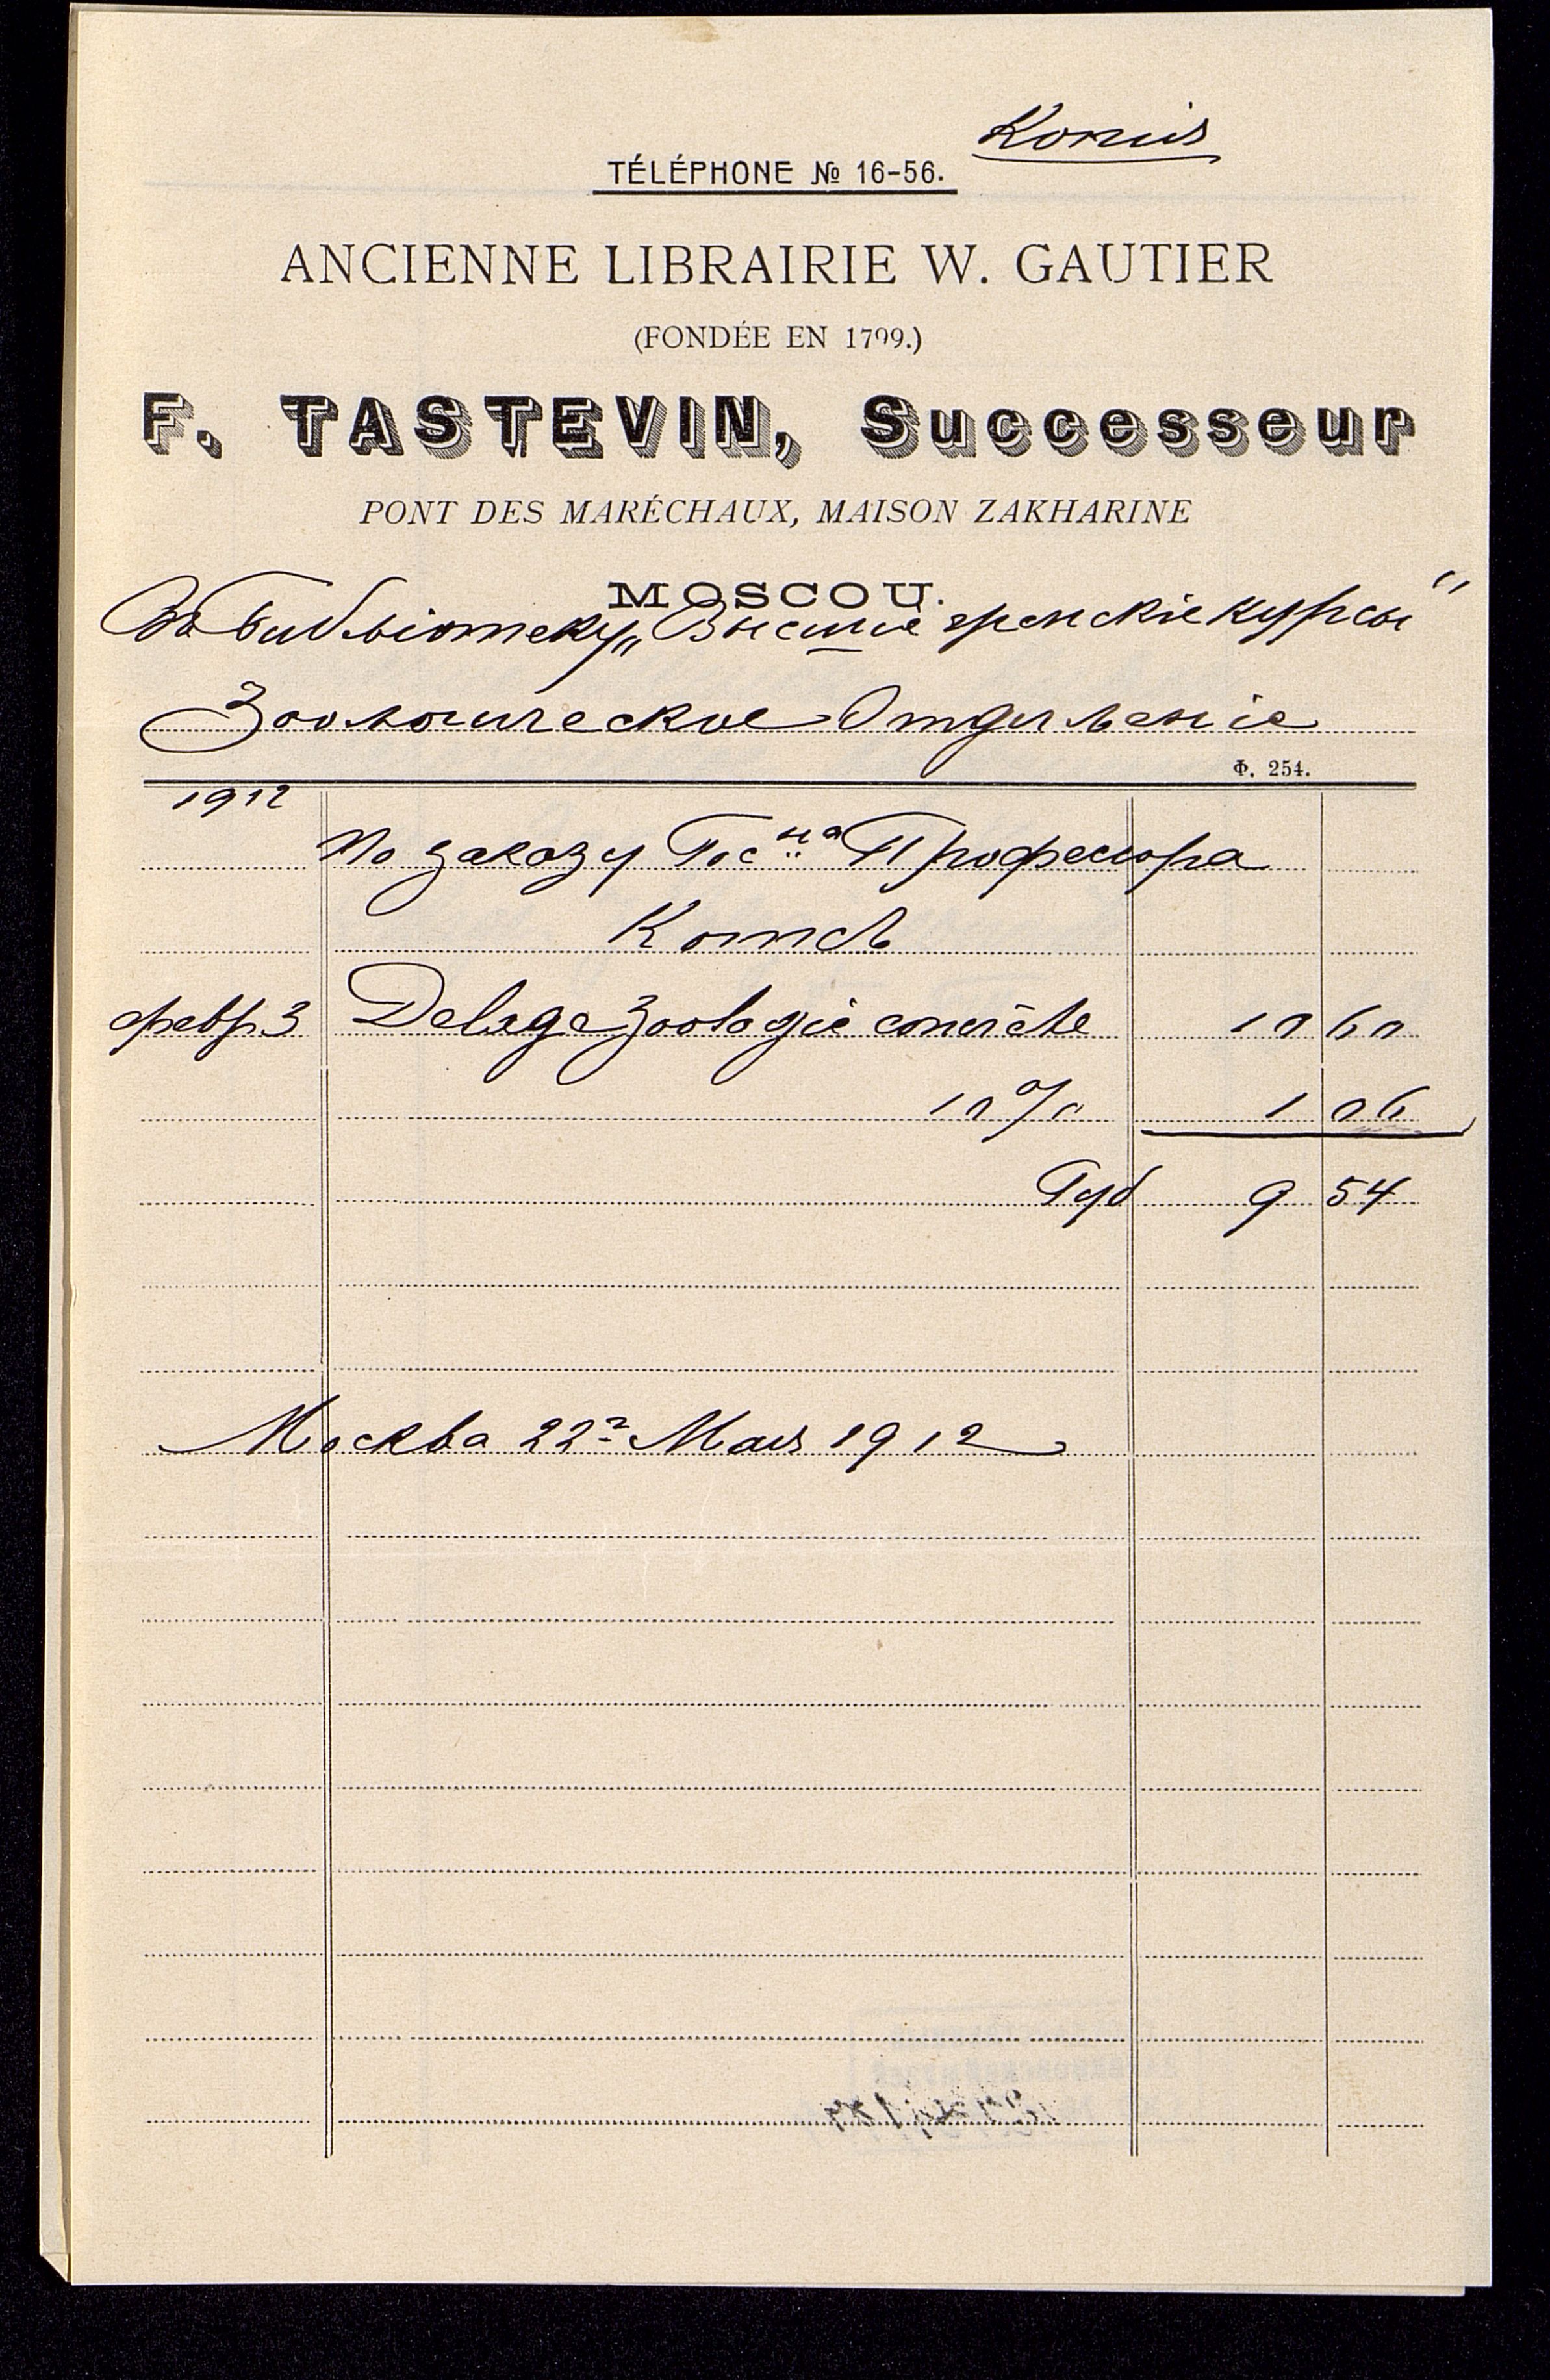 Копія
TÉLÉPHONE № 16-56.
ANCIENNE LIBRAIRIE W. GAUTIER
(FONDÉE EN 1799.)
F. TASTEVIN, Successeur
PONT DES MARÉCHAUX, MAISON ZAKHARINE
MOSCOU.
Въ Библіотеку „Высшіе женскіе курсы“
Зоологическое Отделеніе
Ф. 254.
1912
По заказу Госна Профессора
Котсъ
февр. 3 Delage Zoologie concrète 10 60
10% 1 06
Руб 9 54
Москва 22го Мая 1912